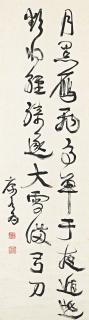 月黑雁飛高單于夜遁逃
欲將輕騎逐大雪滿弓刀